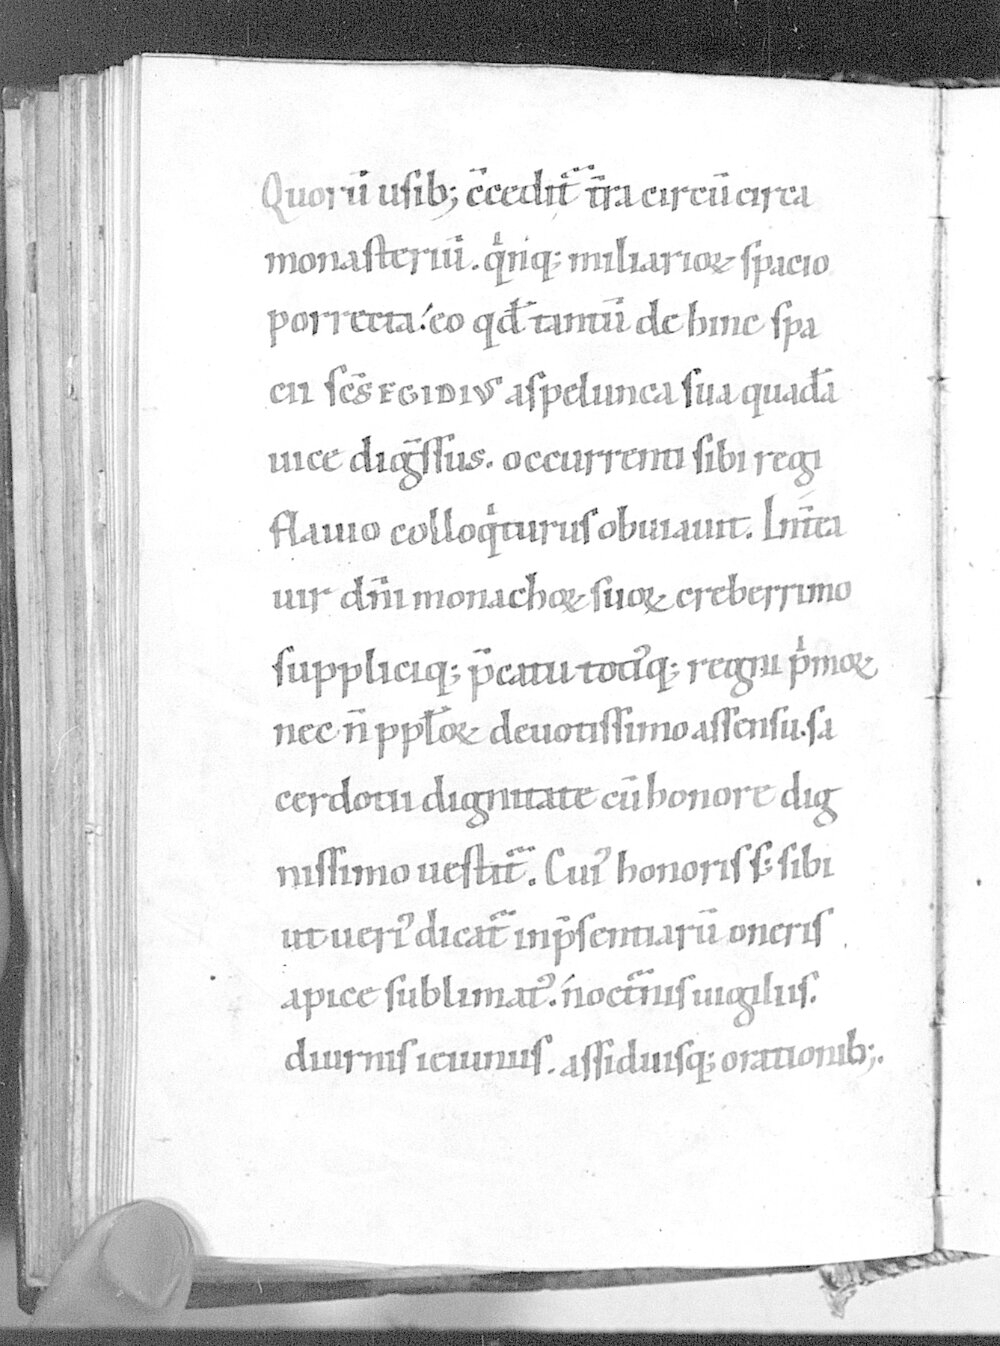 Quorū usib; c̄cedit᷑ t̄ra circū circa
monasteriū. qͥnq; miliarioꝝ spacio
porrecta: eo qđ tantū de hinc spa
cii sc̄s EGIDIUS a spelunca sua quadā
uice diḡssus. occurrenti sibi regi
flauio colloqͥturus obuiauit. Int̄ea
uir dn̄i monachoꝝ suoꝝ creberrimo
suppliciq; p̄catu totiꝰq; regni pͥmoꝝ
nec n̄ ppl̄oꝝ deuotissimo assensu. sa
cerdotii dignitate cū honore dig
nissimo uestit᷑. Cuiꝰ honoris s; sibi
ut ueriꝰ dicat᷑ inp̄sentiarū oneris
apice sublimatꝰ. noct᷑nis uigiliis.
diurnis ieiuniis. assiduisq; orationib;.